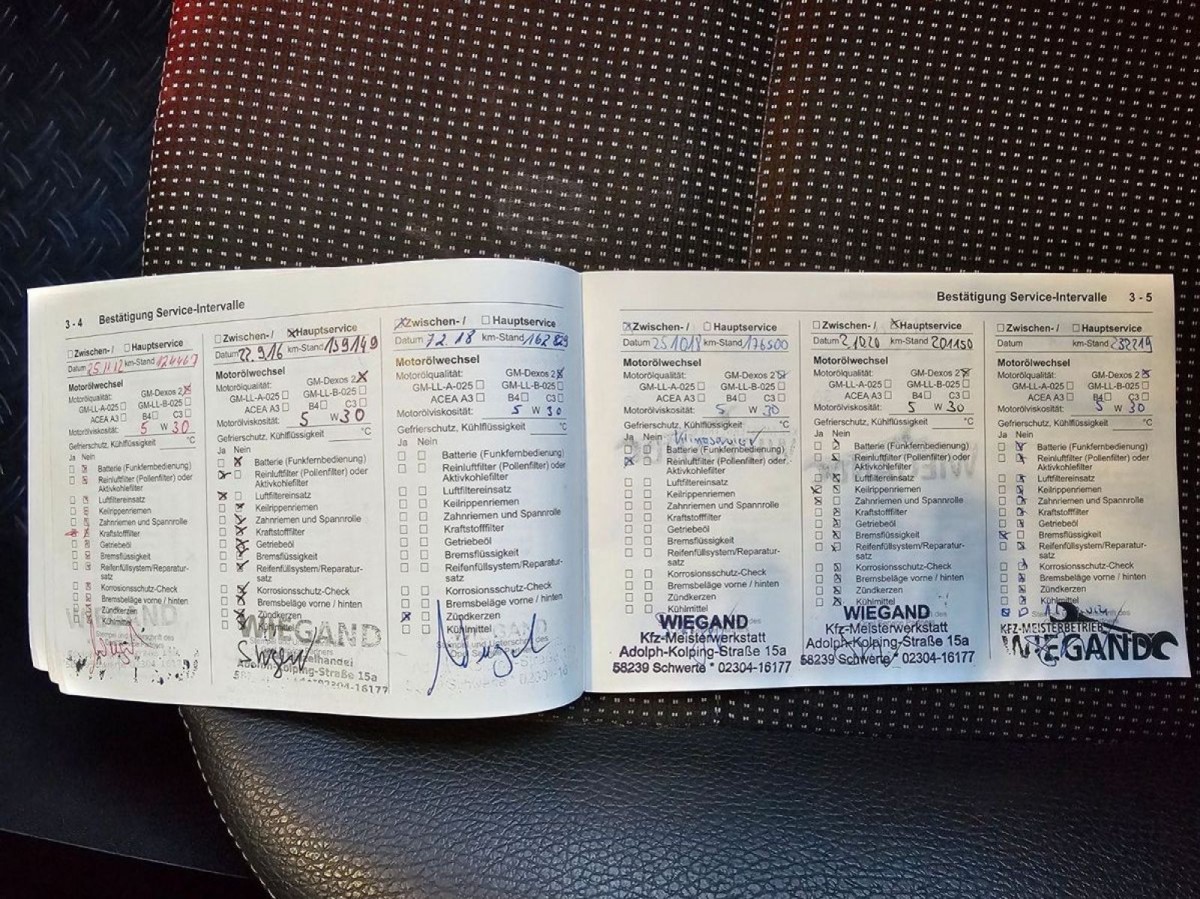 3 - 4 Bestätigung Service-Intervalle
☐ Zwischen- / ☐ Hauptservice
Datum km-Stand 124467
Motorölwechsel
Motorölqualität: GM-Dexos 2 ☒
GM-LL-A-025 ☐ GM-LL-B-025 ☐
ACEA A3 ☐ B4 ☐ C3 ☐
Motorölviskosität: 5 W 30
Gefrierschutz, Kühlflüssigkeit °C
Ja Nein
Batterie (Funkfernbedienung)
Reinluftfilter (Pollenfilter) oder
Aktivkohlefilter
Luftfiltereinsatz
Keilrippenriemen
Zahnriemen und Spannrolle
Kraftstofffilter
Getriebeöl
Bremsflüssigkeit
Reifenfüllsystem/Reparatur-
satz
Korrosionsschutz-Check
Bremsbeläge vorne / hinten
Zündkerzen
Kühlmittel
☐ Zwischen- / ☒ Hauptservice
Datum 22.9.16 km-Stand 139149
Motorölwechsel
Motorölqualität: GM-Dexos 2 ☒
GM-LL-A-025 ☐ GM-LL-B-025 ☐
ACEA A3 ☐ B4 ☐ C3 ☐
Motorölviskosität: 5 W 30
Gefrierschutz, Kühlflüssigkeit °C
Ja Nein
Batterie (Funkfernbedienung)
Reinluftfilter (Pollenfilter) oder
Aktivkohlefilter
Luftfiltereinsatz
Keilrippenriemen
Zahnriemen und Spannrolle
Kraftstofffilter
Getriebeöl
Bremsflüssigkeit
Reifenfüllsystem/Reparatur-
satz
Korrosionsschutz-Check
Bremsbeläge vorne / hinten
Zündkerzen
WIEGAND
Adolph-Kolping-Straße 15a
02304-16177
☒ Zwischen- / ☐ Hauptservice
Datum km-Stand 162
Motorölwechsel
Motorölqualität: GM-Dexos 2 ☒
GM-LL-A-025 ☐ GM-LL-B-025 ☐
ACEA A3 ☐ B4 ☐ C3 ☐
Motorölviskosität: 5 W 30
Gefrierschutz, Kühlflüssigkeit °C
Ja Nein
Batterie (Funkfernbedienung)
Reinluftfilter (Pollenfilter) oder
Aktivkohlefilter
Luftfiltereinsatz
Keilrippenriemen
Zahnriemen und Spannrolle
Kraftstofffilter
Getriebeöl
Bremsflüssigkeit
Reifenfüllsystem/Reparatur-
satz
Korrosionsschutz-Check
Bremsbeläge vorne / hinten
Zündkerzen
Kühlmittel
Bestätigung Service-Intervalle 3 - 5
☒ Zwischen- / ☐ Hauptservice
Datum 251018 km-Stand 176500
Motorölwechsel
Motorölqualität: GM-Dexos 2 ☒
GM-LL-A-025 ☐ GM-LL-B-025 ☐
ACEA A3 ☐ B4 ☐ C3 ☐
Motorölviskosität: 5 W 30
Gefrierschutz, Kühlflüssigkeit °C
Ja Nein Klimaservice
Batterie (Funkfernbedienung)
Reinluftfilter (Pollenfilter) oder
Aktivkohlefilter
Luftfiltereinsatz
Keilrippenriemen
Zahnriemen und Spannrolle
Kraftstofffilter
Getriebeöl
Bremsflüssigkeit
Reifenfüllsystem/Reparatur-
satz
Korrosionsschutz-Check
Bremsbeläge vorne / hinten
Zündkerzen
Kühlmittel
WIEGAND
Kfz-Meisterwerkstatt
Adolph-Kolping-Straße 15a
58239 Schwerte * 02304-16177
☐ Zwischen- / ☒ Hauptservice
Datum km-Stand 201150
Motorölwechsel
Motorölqualität: GM-Dexos 2 ☒
GM-LL-A-025 ☐ GM-LL-B-025 ☐
ACEA A3 ☐ B4 ☐ C3 ☐
Motorölviskosität: 5 W 30
Gefrierschutz, Kühlflüssigkeit °C
Ja Nein
Batterie (Funkfernbedienung)
Reinluftfilter (Pollenfilter) oder
Aktivkohlefilter
Luftfiltereinsatz
Keilrippenriemen
Zahnriemen und Spannrolle
Kraftstofffilter
Getriebeöl
Bremsflüssigkeit
Reifenfüllsystem/Reparatur-
satz
Korrosionsschutz-Check
Bremsbeläge vorne / hinten
Zündkerzen
Kühlmittel
WIEGAND
Kfz-Meisterwerkstatt
Adolph-Kolping-Straße 15a
58239 Schwerte * 02304-16177
☐ Zwischen- / ☐ Hauptservice
Datum km-Stand 232219
Motorölwechsel
Motorölqualität: GM-Dexos 2 ☒
GM-LL-A-025 ☐ GM-LL-B-025 ☐
ACEA A3 ☐ B4 ☐ C3 ☐
Motorölviskosität: 5 W 30
Gefrierschutz, Kühlflüssigkeit °C
Ja Nein
Batterie (Funkfernbedienung)
Reinluftfilter (Pollenfilter) oder
Aktivkohlefilter
Luftfiltereinsatz
Keilrippenriemen
Zahnriemen und Spannrolle
Kraftstofffilter
Getriebeöl
Bremsflüssigkeit
Reifenfüllsystem/Reparatur-
satz
Korrosionsschutz-Check
Bremsbeläge vorne / hinten
Zündkerzen
KFZ-MEISTERBETRIEB
WIEGAND